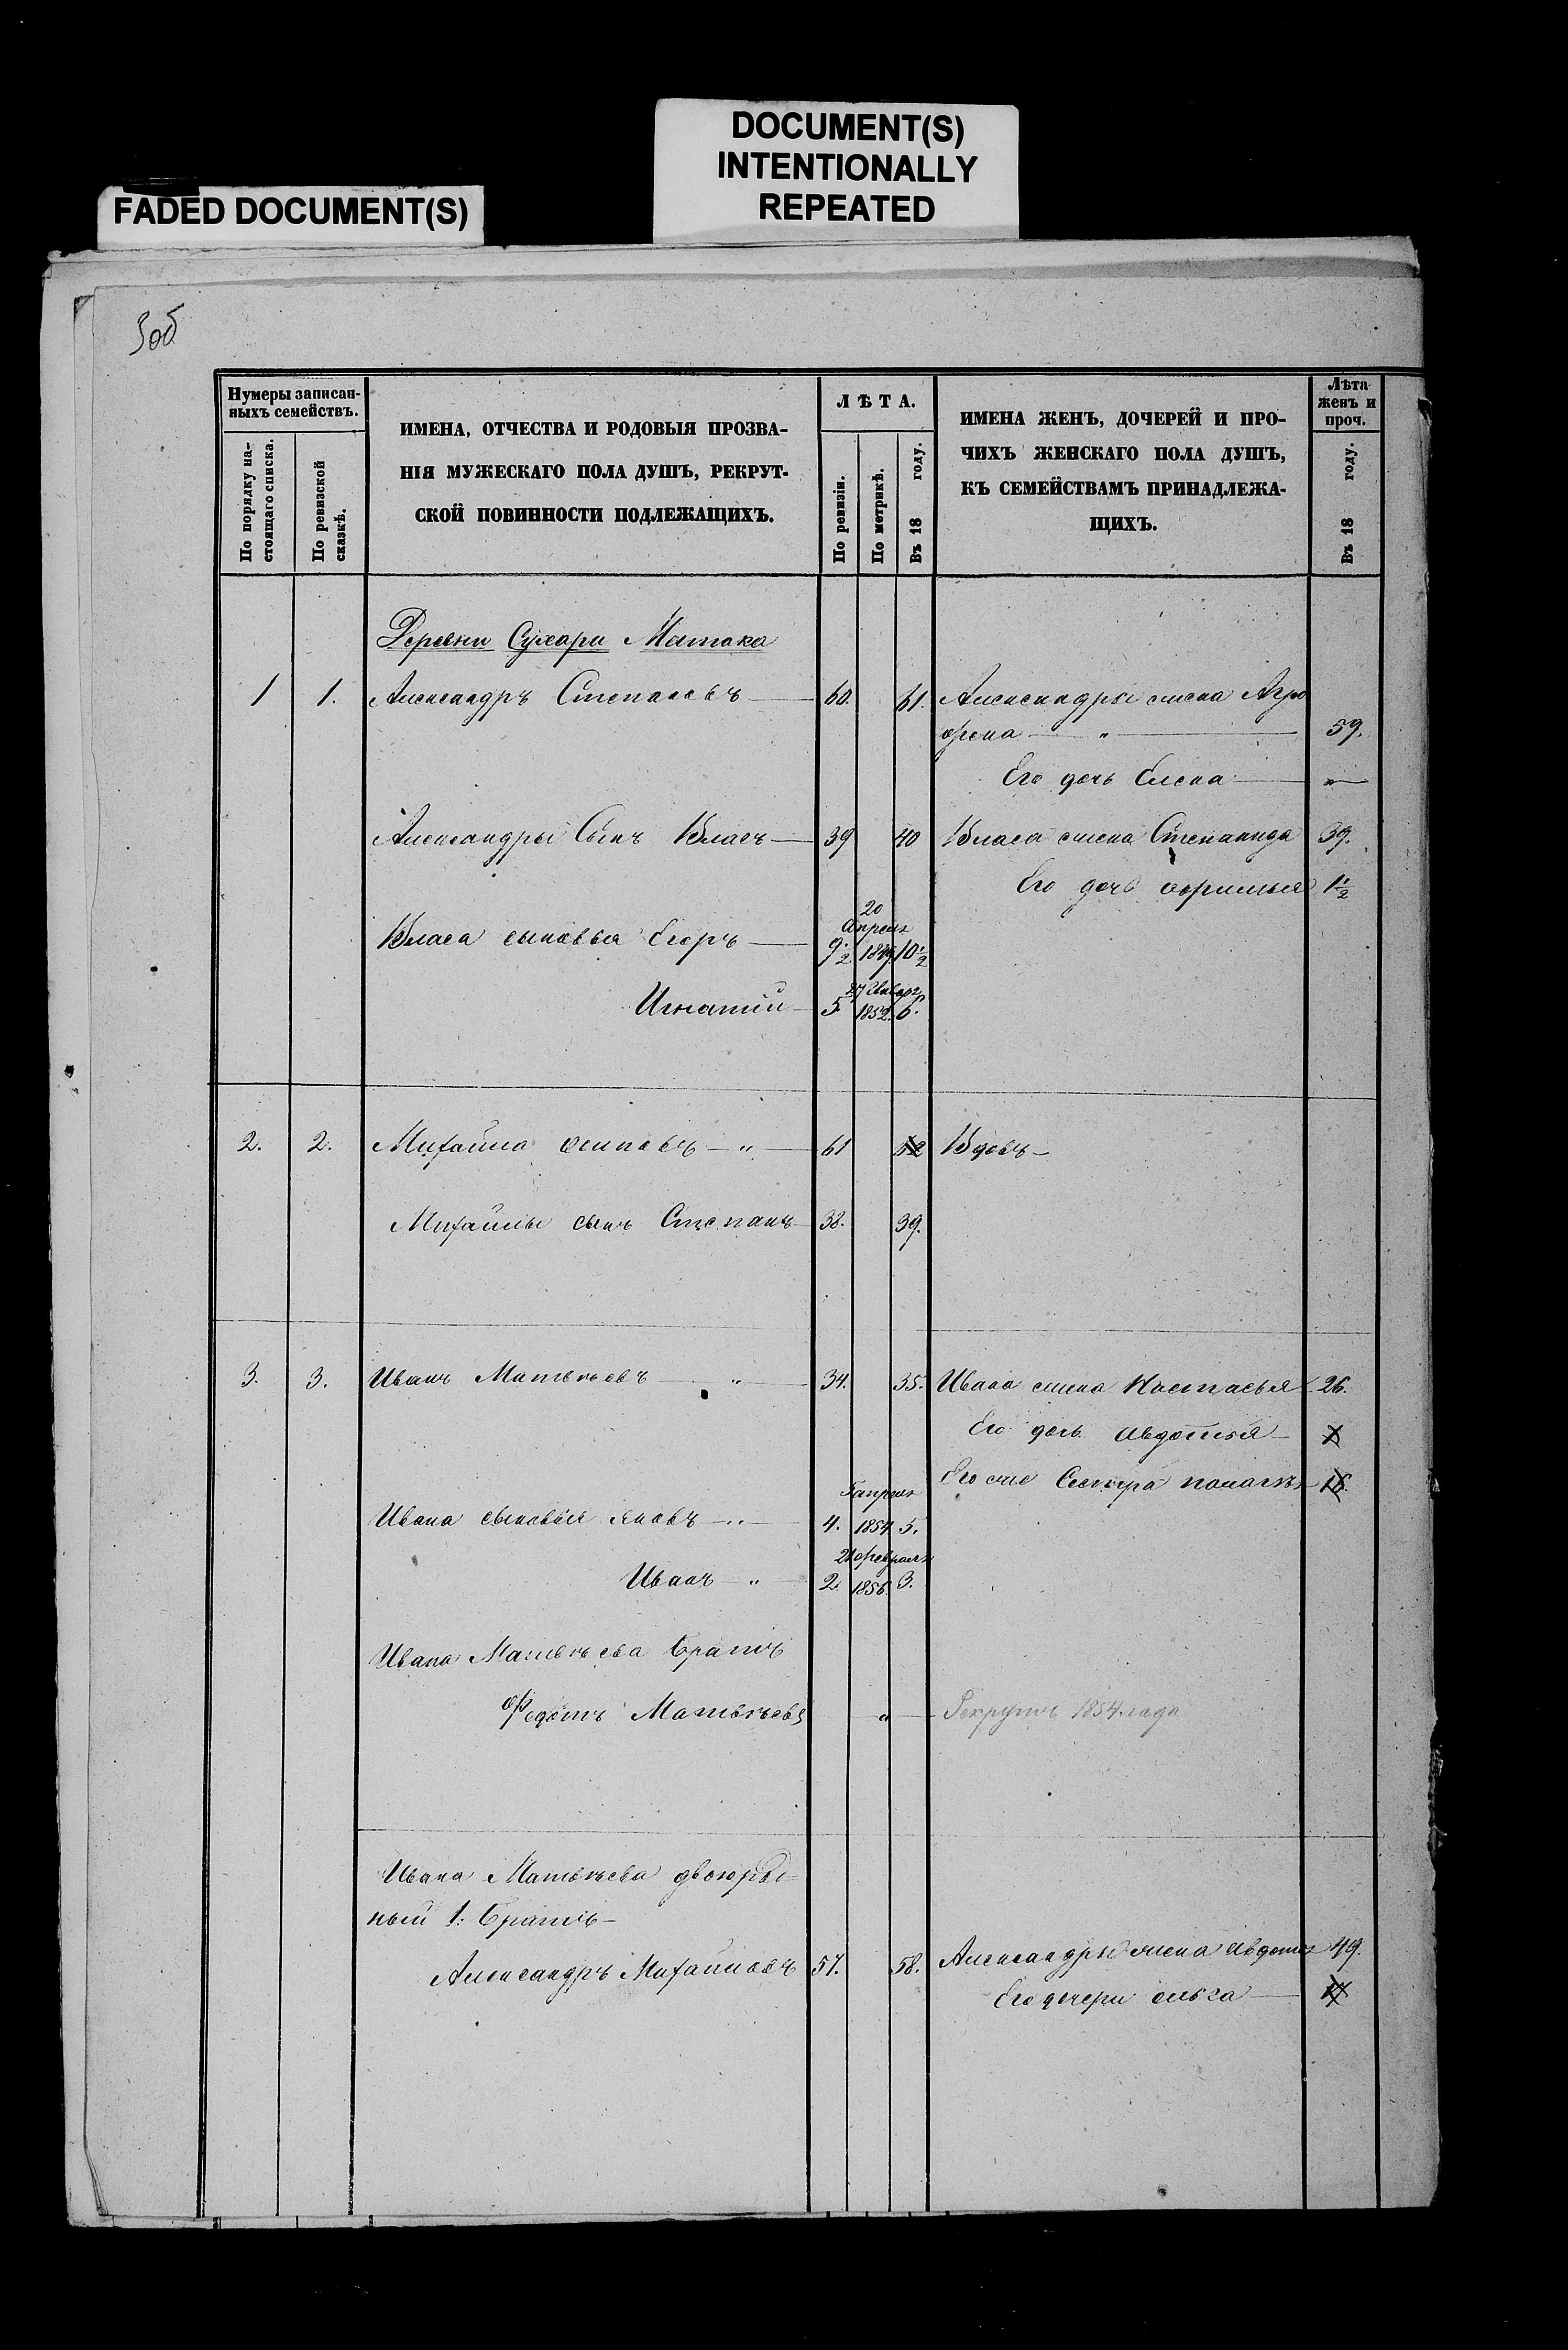 DOCUMENT(S)
INTENTIONALLY
REPEATED
FADED DOCUMENT(S)
3об
Нумеры записан-
ныхъ семействъ.
По порядку на-
стоящаго списка.
По ревизской
сказкѣ.
ИМЕНА, ОТЧЕСТВА И РОДОВЫЯ ПРОЗВА-
НІЯ МУЖЕСКАГО ПОЛА ДУШЪ, РЕКРУТ-
СКОЙ ПОВИННОСТИ ПОДЛЕЖАЩИХЪ.
ЛѢТА.
По ревизіи.
По метрикѣ.
Въ 18 году.
ИМЕНА ЖЕНЪ, ДОЧЕРЕЙ И ПРО-
ЧИХЪ ЖЕНСКАГО ПОЛА ДУШЪ,
КЪ СЕМЕЙСТВАМЪ ПРИНАДЛЕЖА-
ЩИХЪ.
Лѣта
женъ и
проч.
Въ 18 году.
Деревни Сухари Матака
1 1. Александръ Степановъ 60. 61. Александры жена Агра
фена „ 59.
Его дочь Елена „
Александры Сынъ Власъ 39 40 Власа жена Степанида 39.
Его дочь 1 1/2
20
Апреля
Власа сыновья Егоръ 9 1/2 1849 10 1/2
27 Января
Игнатій 5 1852. 6.
2. 2. Михайла осиповъ „ 61 62 Вдовъ
Михайлы сынъ Степанъ 38. 39.
3. 3. Иванъ Матвѣевъ „ 34. 35. Ивана жена Настасья 26.
Его дочь Авдотья
Его же Сестра 16.
апреля
Ивана сыновья яковъ „ 4. 1854 5.
февраля
Иванъ „ 2. 1856. 3.
Ивана Матвѣева братъ
Федотъ Матвѣевъ „ Рекрутъ 1854 года
Ивана Матвѣева двоюрод-
ный 1: братъ
Александръ Михайловъ 57. 58. Александры жена Авдотья 49.
Его дочери ольга 17